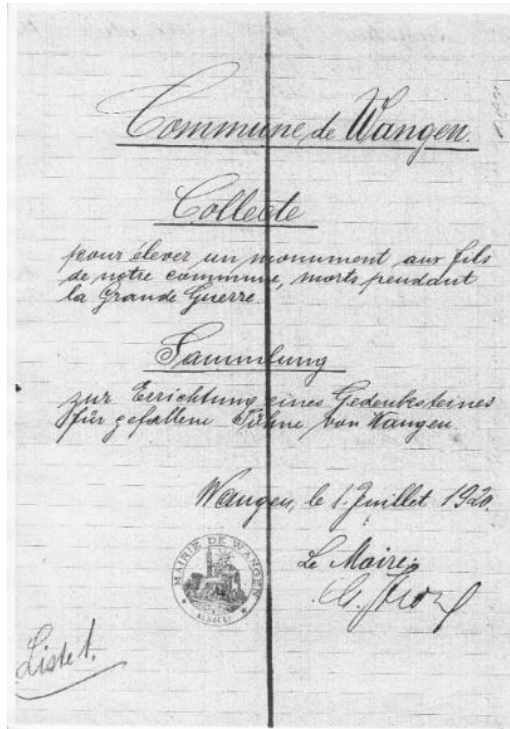 Commune de Wangen.
Collecte
pour élever un monument aux fils
de notre commune, morts pendant
la Grande Guerre.
Sammlung
zur Errichtung eines Gedenksteines
für gefallene Söhne von Wangen
Wangen, le 1. Juillet 1920.
Le Maire:
G.
MAIRIE DE WANGEN
ALSACE
Liste 1.